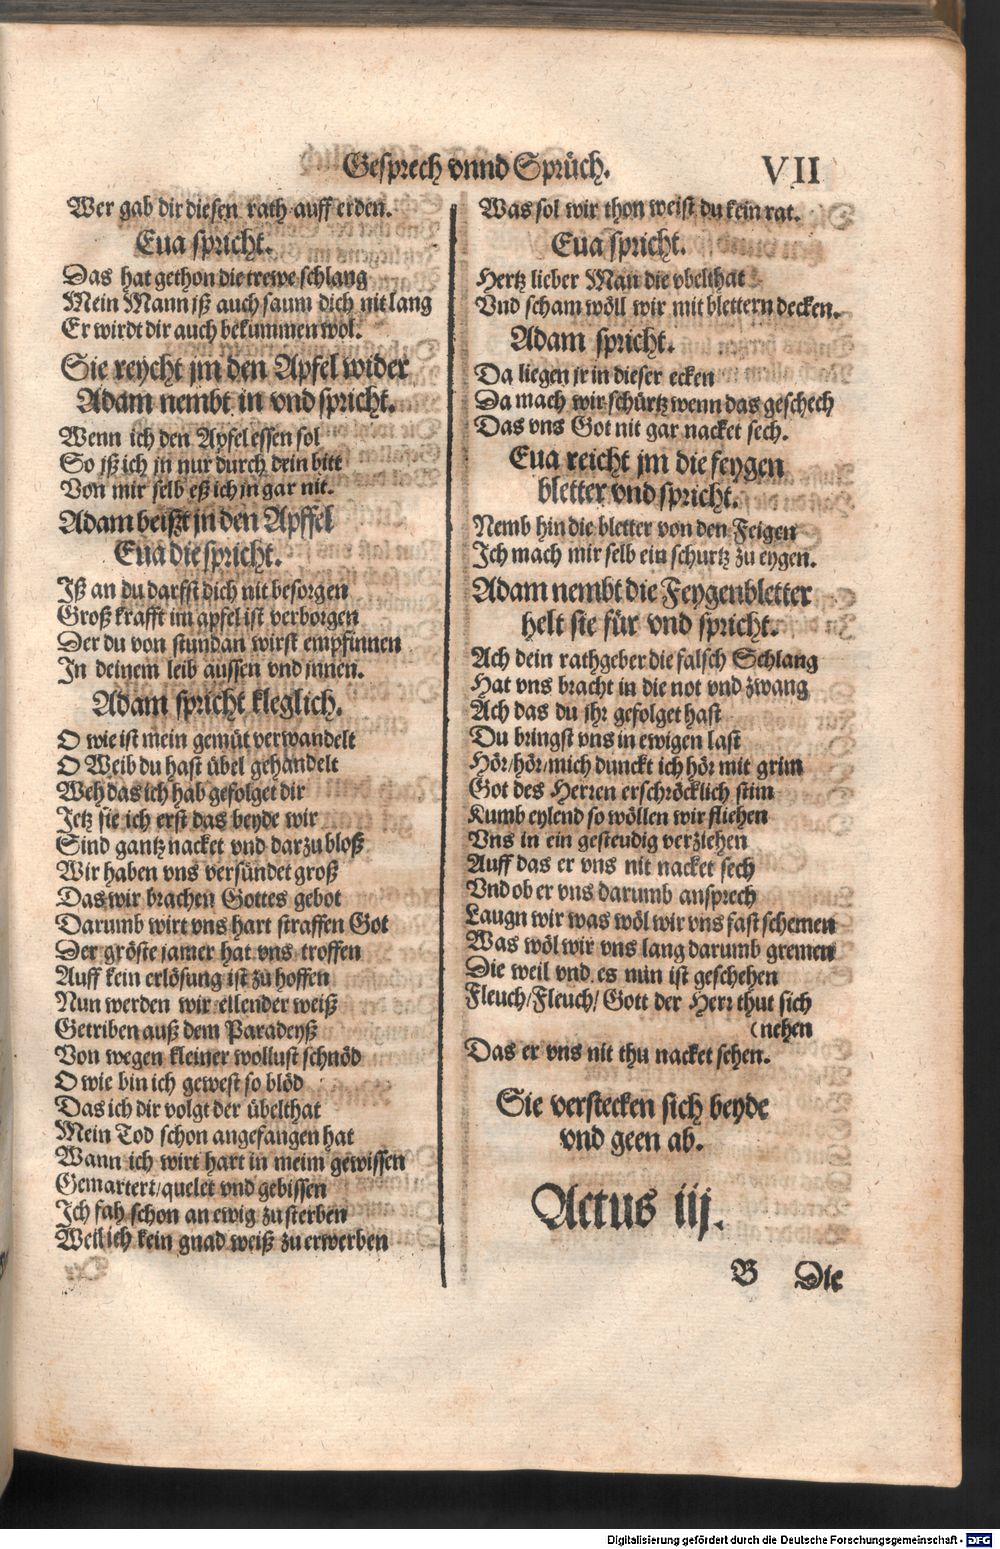 Gesprech vnnd Sprüch. VII
Wer gab dir diesen rath auff erden.
Eua spricht.
Das hat gethon die trewe schlang
Mein Mann iß auch saum dich nit lang
Er wirdt dir auch bekummen wol.
Sie reycht jm den Apfel wider
Adam nembt in vnd spricht.
Wenn ich den Apfel essen sol
So iß ich jn nur durch dein bitt
Von mir selb eß ich jn gar nit.
Adam beißt in den Apffel
Eua die spricht.
Iß an du darffst dich nit besorgen
Groß krafft im apfel ist verborgen
Der du von stundan wirst empfinnen
In deinem leib aussen vnd jnnen.
Adam spricht kleglich.
O wie ist mein gemüt verwandelt
O Weib du hast übel gehandelt
Weh das ich hab gefolget dir
Jetz sie ich erst das beyde wir
Sind gantz nacket vnd darzu bloß
Wir haben vns versündet groß
Das wir brachen Gottes gebot
Darumb wirt vns hart straffen Got
Der gröste jamer hat vns troffen
Auff kein erlösung ist zu hoffen
Nun werden wir ellender weiß
Getriben auß dem Paradeyß
Von wegen kleiner wollust schnöd
O wie bin ich gewest so blöd
Das ich dir volgt der übelthat
Mein Tod schon angefangen hat
Wann ich wirt hart in meim gewissen
Gemartert/quelet vnd gebissen
Ich fah schon an ewig zu sterben
Weil ich kein gnad weiß zu erwerben
Was sol wir thon weist du kein rat.
Eua spricht.
Hertz lieber Man die vbelthat
Vnd scham wöll wir mit blettern decken.
Adam spricht.
Da liegen jr in dieser ecken
Da mach wir schürtz wenn das geschech
Das vns Got nit gar nacket sech.
Eua reicht jm die feygen
bletter vnd spricht.
Nemb hin die bletter von den Feigen
Ich mach mir selb ein schurtz zu eygen.
Adam nembt die Feygenbletter
helt sie für vnd spricht.
Ach dein rathgeber die falsch Schlang
Hat vns bracht in die not vnd zwang
Ach das du jhr gefolget hast
Du bringst vns in ewigen last
Hör/hör/mich dunckt ich hör mit grim
Got des Herren erschröcklich stim
Kumb eylend so wöllen wir fliehen
Vns in ein gesteudig verziehen
Auff das er vns nit nacket sech
Vnd ob er vns darumb ansprech
Laugn wir was wöl wir vns fast schemen
Was wöl wir vns lang darumb gremen
Die weil vnd es nun ist geschehen
Fleuch/Fleuch/Gott der Herr thut sich
(nehen
Das er vns nit thu nacket sehen.
Sie verstecken sich beyde
vnd geen ab.
Actus iij.
B Die
Digitalisierung gefördert durch die Deutsche Forschungsgemeinschaft - DFG